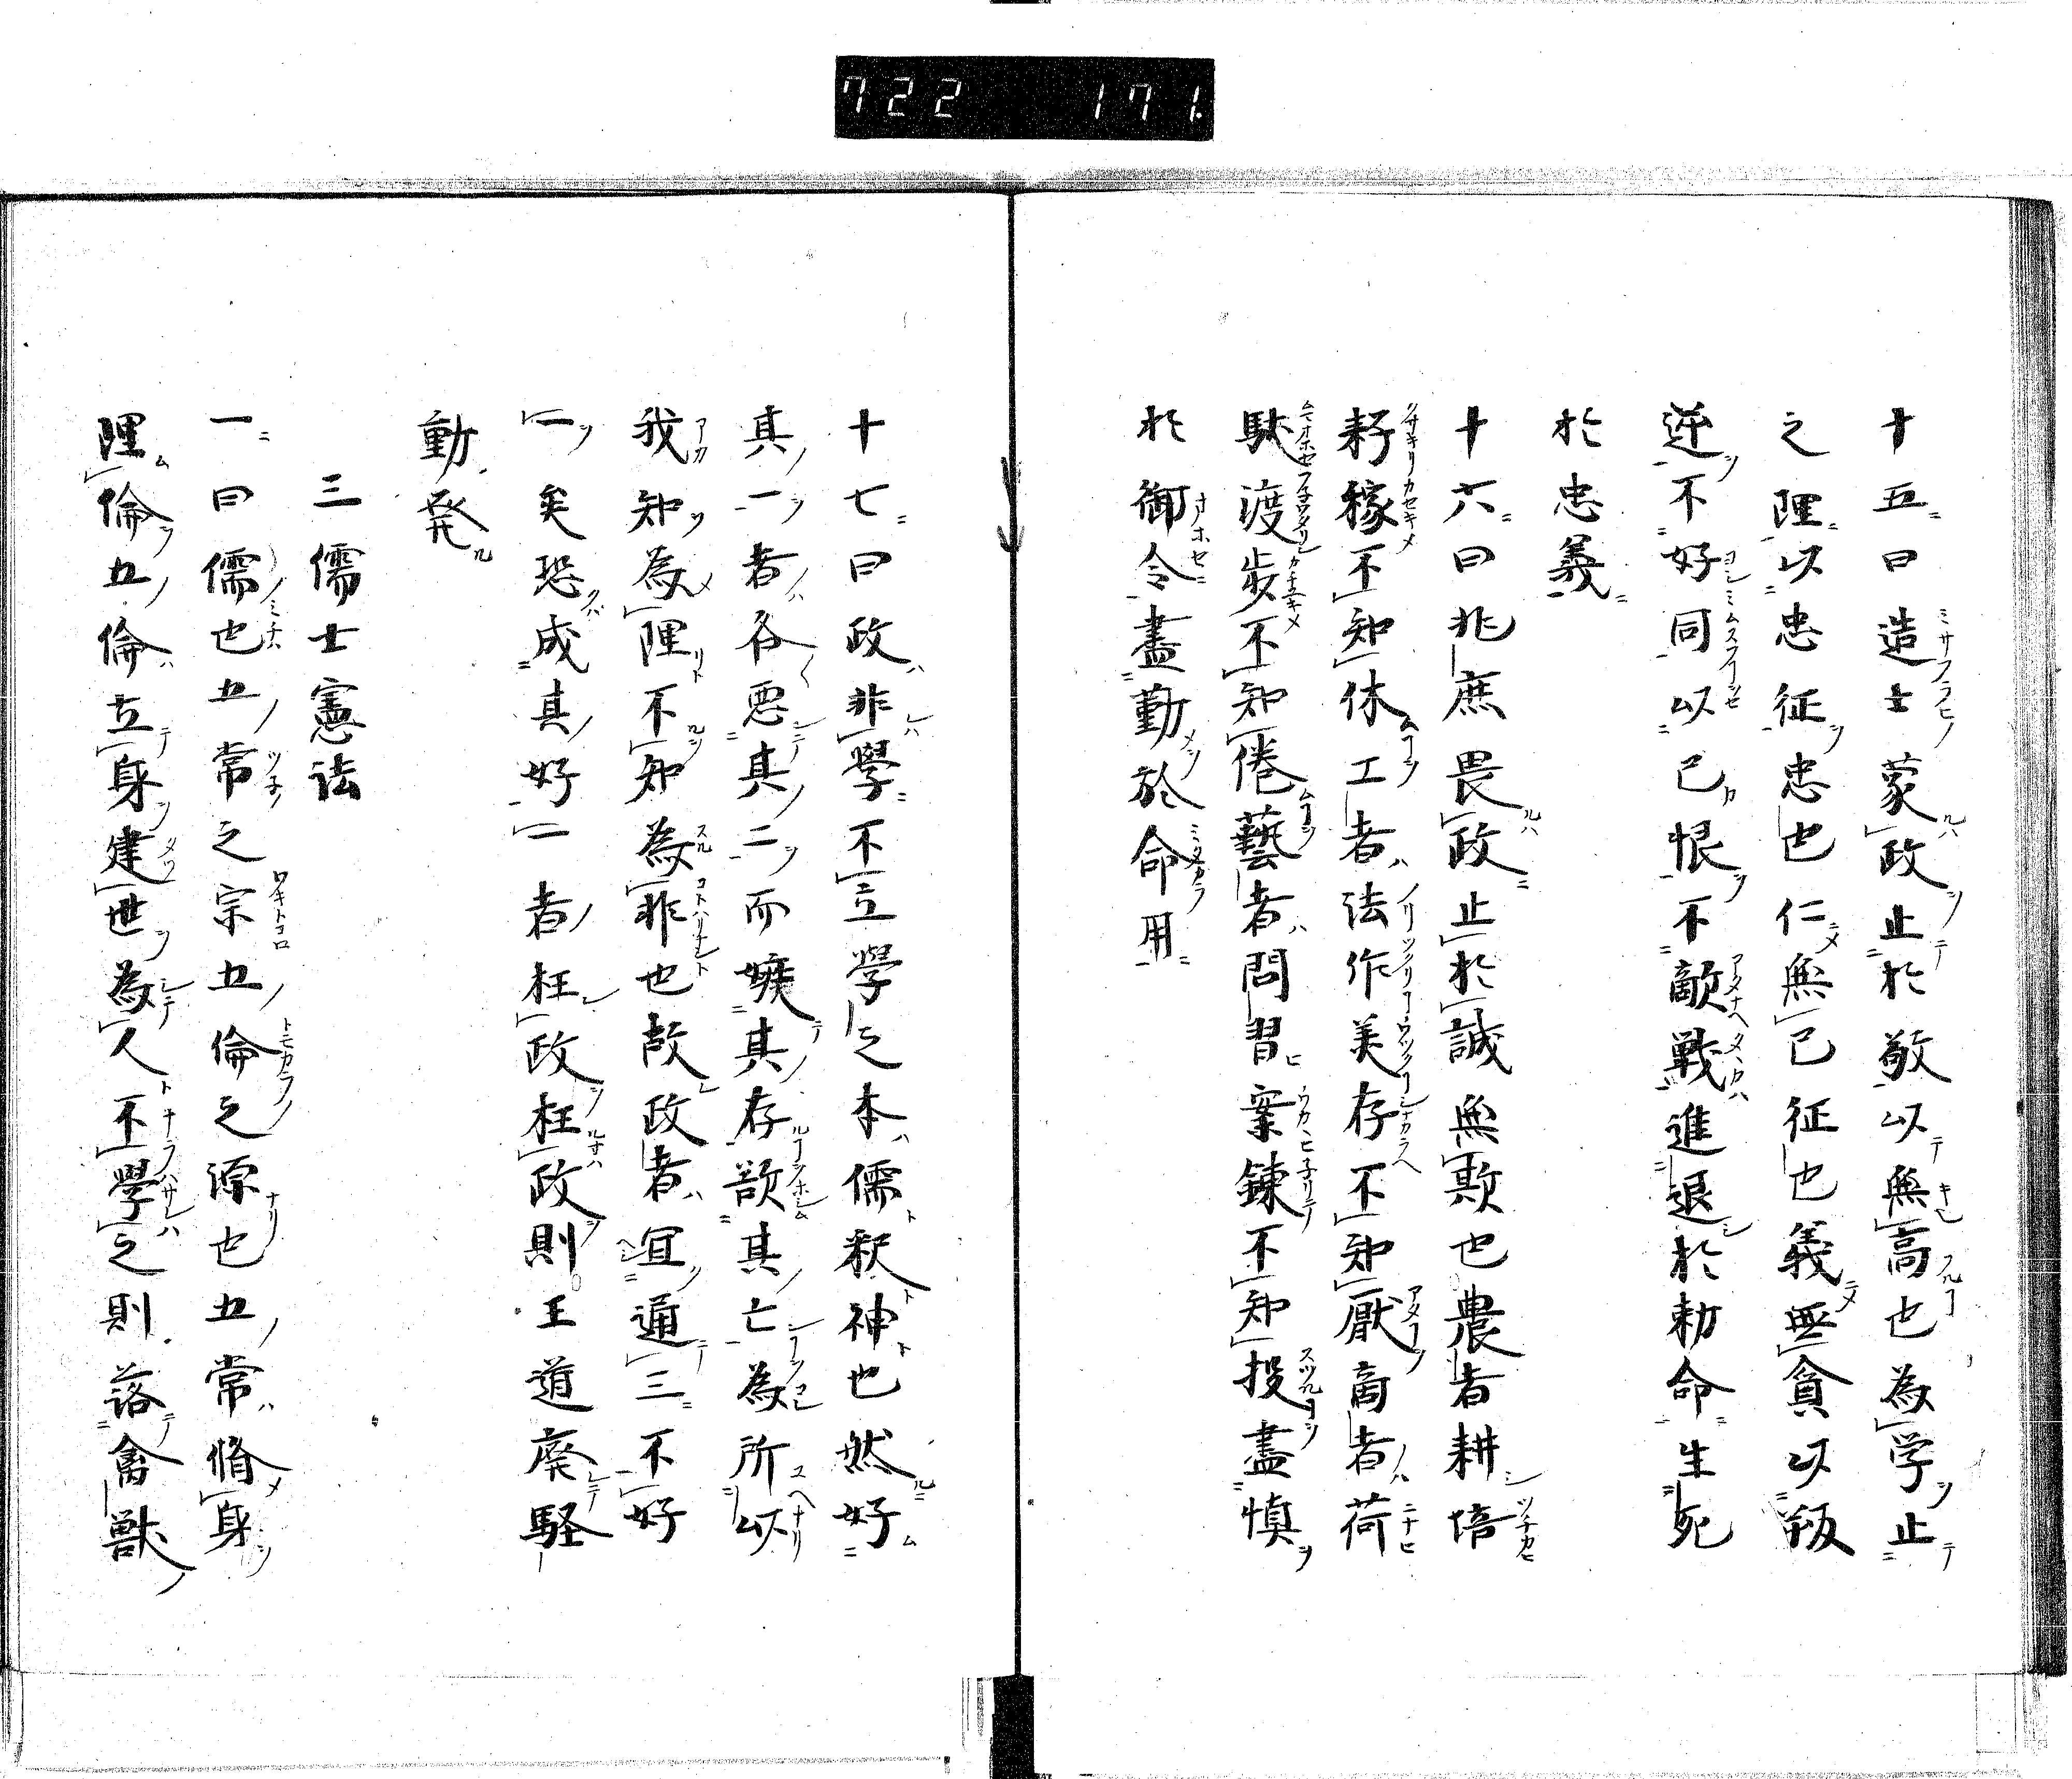 722 171.
十五曰造士蒙政止於敬以無高也為学止
之理以忠征忠也仁無己征也義無貪以叛
逆不好同以己恨不敵戦進退於勅命生死
於忠義
十六曰兆庶畏政止於誠無欺也農者耕倍
耔稼不知休工者法作美存不知厭商者荷
馱渡歩不知倦藝者問習案錬不知投盡慎
於御令盡勤於命用
十七曰政非學不立學之本儒釈神也然好
其一者各悪其二而嫉其存欲其亡為所以
我知為理不知為非也故政者宜通三不好
一矣恐成其好一者枉政枉政則王道廃騒
動発
三儒士憲法
一曰儒也五常之宗五倫之源也五常脩身
理倫五倫立身建世為人不學之則落禽獣